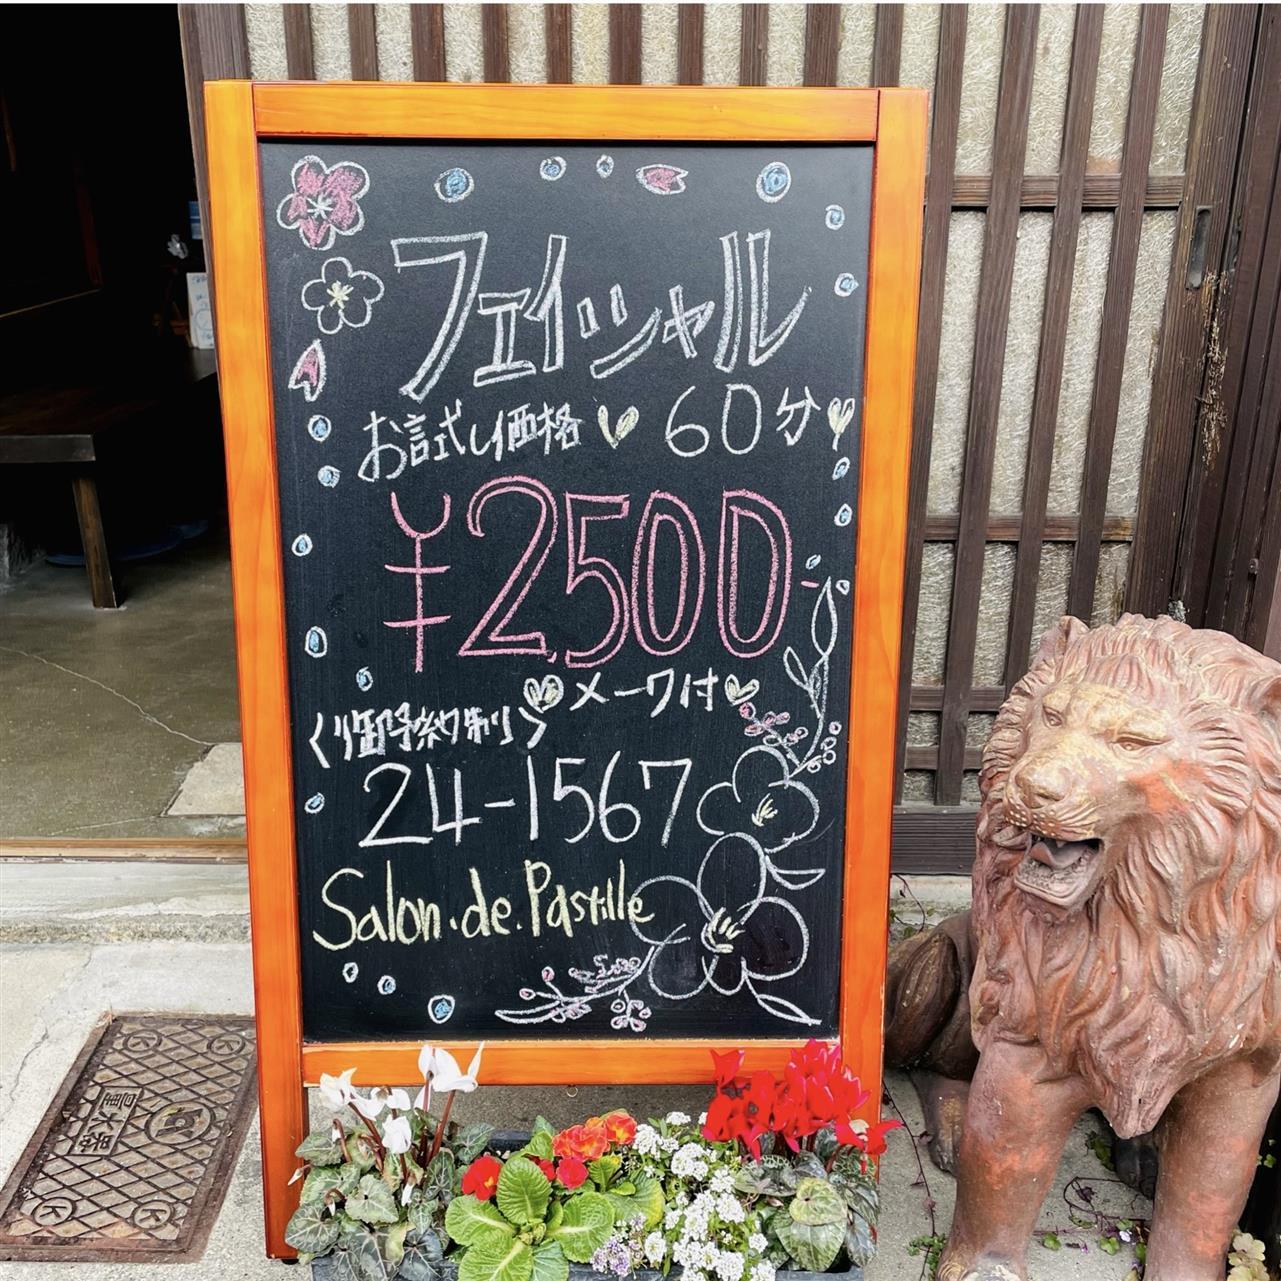 フェイシャル
お試し価格 60分
¥2,500-
メーク付
〈御予約制〉
24-1567
Salon.de.Pastille